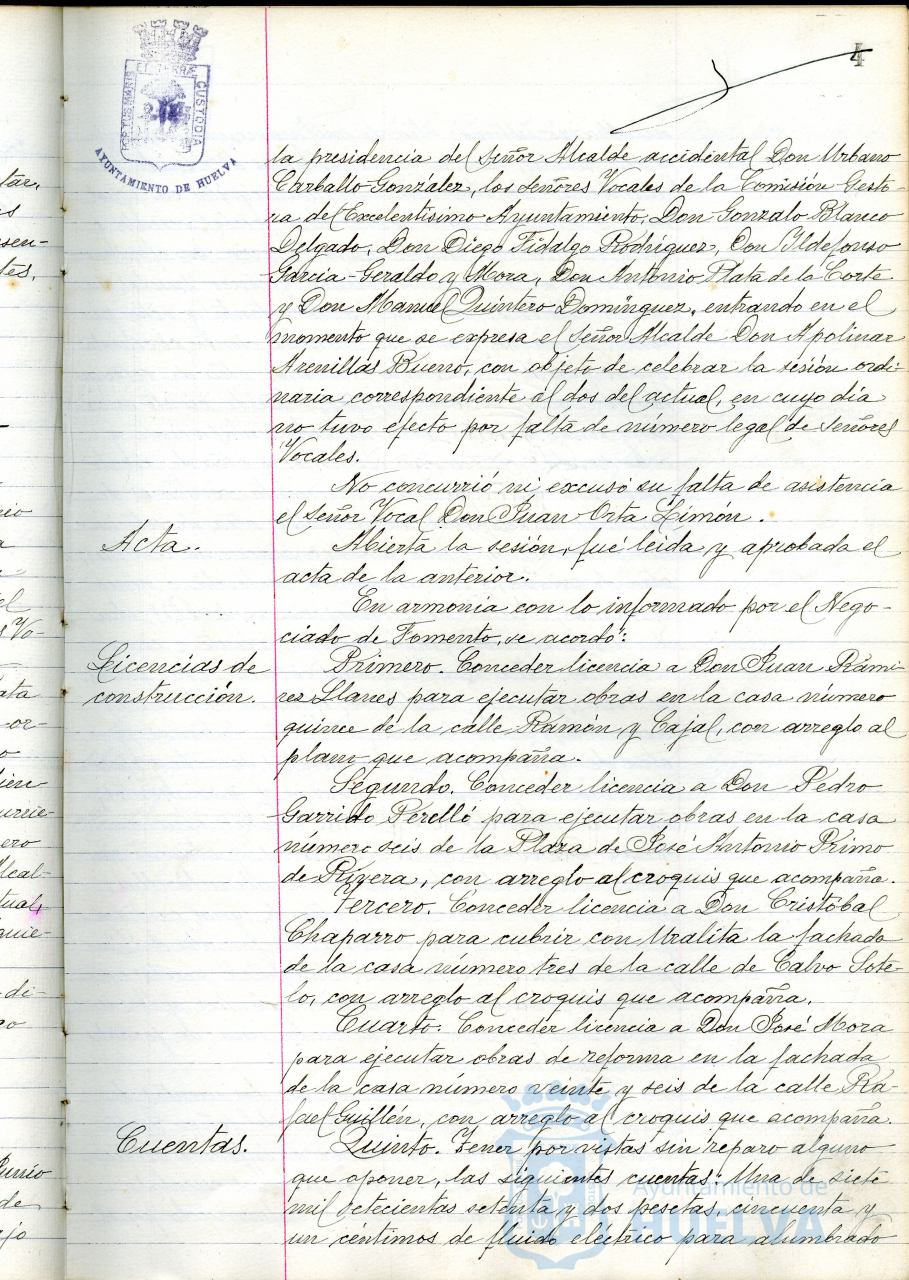 4
PORTUS MARIS ET TERRAE CUSTODIA
AYUNTAMIENTO DE HUELVA
la presidencia del Señor Alcalde accidental Don Urbano
Carballo González, los señores Vocales de la Comisión Gesto-
ra del Excelentísimo Ayuntamiento, Don Gonzalo Blanco
Delgado, Don Diego Fidalgo Rodríguez, Don Ildefonso
García-Geraldo y Mora, Don Antonio Plata de la Corte
y Don Manuel Quintero Domínguez, entrando en el
momento que se expresa el Señor Alcalde Don Apolinar
Arenillas Bueno, con objeto de celebrar la sesión ordi-
naria correspondiente al dos del actual, en cuyo día
no tuvo efecto por falta de número legal de Señores
Vocales.
No concurrió ni excusó su falta de asistencia
el Señor Vocal Don Juan Orta Limón.
Acta.
Abierta la sesión, fué leida y aprobada el
acta de la anterior.
En armonia con lo informado por el Nego-
ciado de Fomento, se acordó:
Licencias de
construcción.
Primero. Conceder licencia a Don Juan Rami-
rez Llanes para ejecutar obras en la casa número
quince de la calle Ramón y Cajal, con arreglo al
plano que acompaña.
Segundo. Conceder licencia a Don Pedro
Garrido Perelló para ejecutar obras en la casa
número seis de la Plaza de José Antonio Primo
de Rivera, con arreglo al croquis que acompaña.
Tercero. Conceder licencia a Don Cristóbal
Chaparro para cubrir con Uralita la fachada
de la casa número tres de la calle de Calvo Sote-
lo, con arreglo al croquis que acompaña.
Cuarto. Conceder licencia a Don José Mora
para ejecutar obras de reforma en la fachada
de la casa número veinte y seis de la calle Ra-
fael Guillén, con arreglo al croquis que acompaña.
Cuentas.
Quinto. Tener por vistas sin reparo alguno
que oponer, las siguientes cuentas: Una de siete
mil setecientas setenta y dos pesetas, cincuenta y
un céntimos de fluido eléctrico para alumbrado
Ayuntamiento de
HUELVA